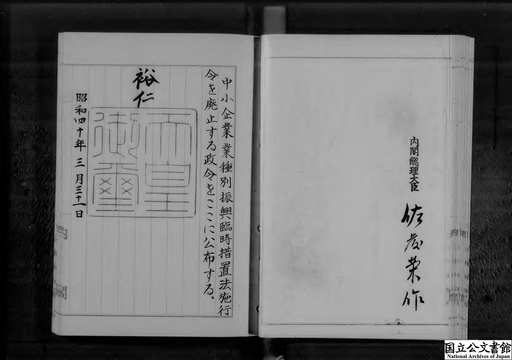 中小企業業種別振興臨時措置法施行
令を廃止する政令をここに公布する。
裕仁
天皇
御璽
昭和四十年三月三十一日
内閣総理大臣
佐藤榮作
国立公文書館
National Archives of Japan